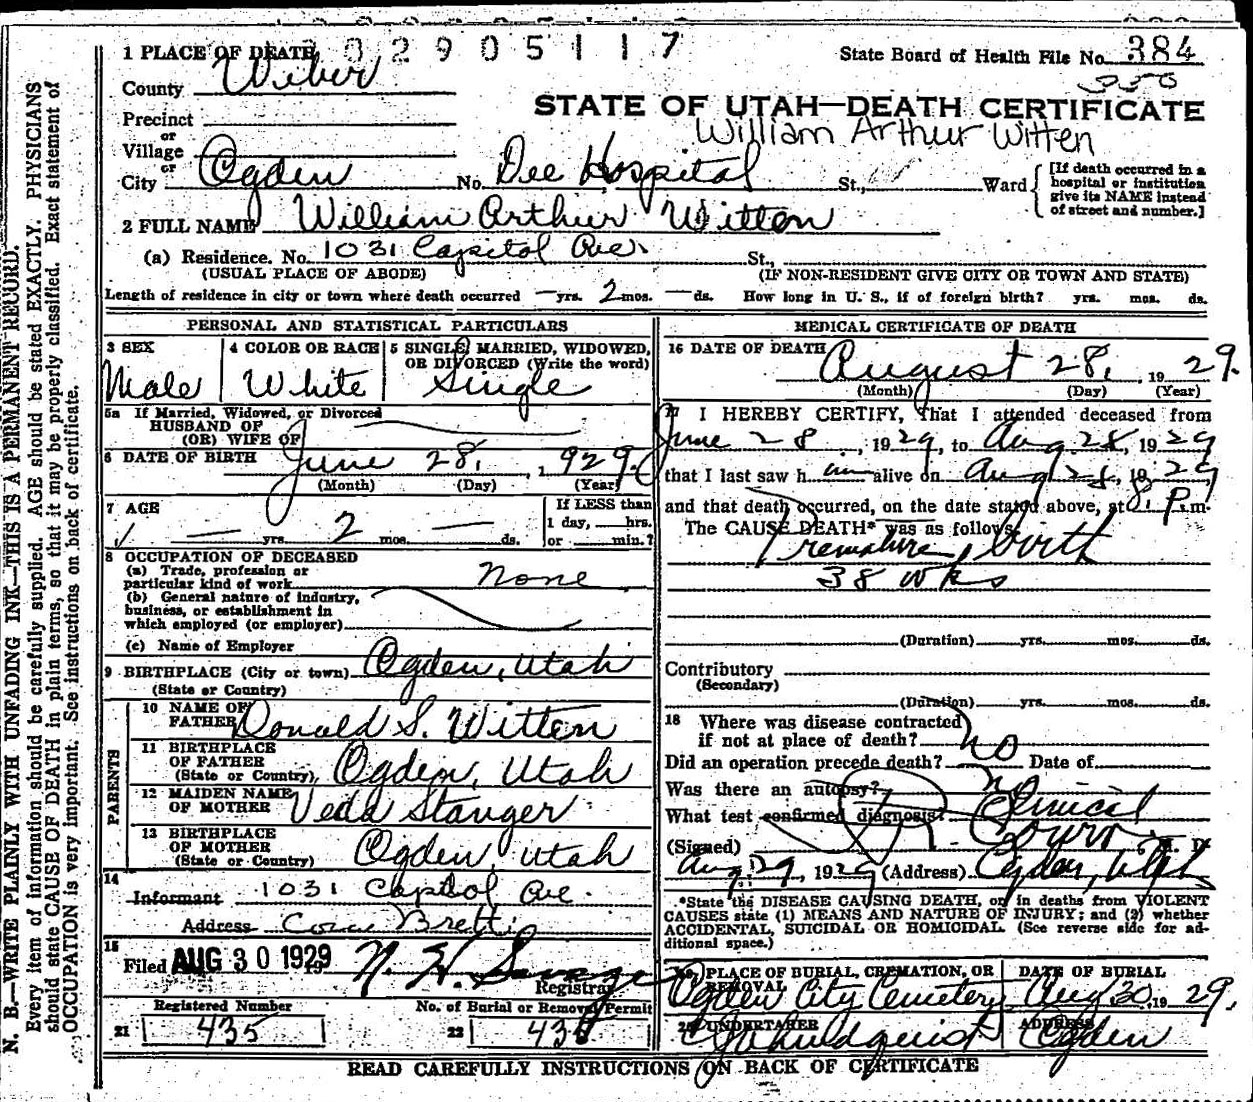 1 PLACE OF DEATH 02905117 State Board of Health File No. 384
County Weber 350
STATE OF UTAH—DEATH CERTIFICATE
Precinct
William Arthur Witten
or
Village
or
City Ogden No. Dee Hospital St., Ward [If death occurred in a hospital or institution give its NAME instead of street and number.]
2 FULL NAME William Arthur Witten
(a) Residence. No. 1031 Capitol Ave. St.,
(USUAL PLACE OF ABODE) (IF NON-RESIDENT GIVE CITY OR TOWN AND STATE)
Length of residence in city or town where death occurred — yrs. 2 mos. — ds. How long in U. S., if of foreign birth? yrs. mos. ds.
PERSONAL AND STATISTICAL PARTICULARS
3 SEX Male
4 COLOR OR RACE White
5 SINGLE, MARRIED, WIDOWED, OR DIVORCED (Write the word) Single
5a If Married, Widowed, or Divorced
HUSBAND OF
(OR) WIFE OF
6 DATE OF BIRTH June 28, 1929.
(Month) (Day) (Year)
7 AGE — yrs. 2 mos. — ds.
If LESS than
1 day, hrs.
or min.?
8 OCCUPATION OF DECEASED
(a) Trade, profession or
particular kind of work None
(b) General nature of industry,
business, or establishment in
which employed (or employer)
(c) Name of Employer
9 BIRTHPLACE (City or town) Ogden, Utah
(State or Country)
PARENTS
10 NAME OF
FATHER Donald S. Witten
11 BIRTHPLACE
OF FATHER
(State or Country) Ogden, Utah
12 MAIDEN NAME
OF MOTHER Veda Stanger
13 BIRTHPLACE
OF MOTHER
(State or Country) Ogden, Utah
14
Informant 1031 Capitol Ave.
Address
15
Filed AUG 30 1929 N. H. Savage
Registrar
Registered Number
21 435
No. of Burial or Removal Permit
22 435
MEDICAL CERTIFICATE OF DEATH
16 DATE OF DEATH August 28, 1929.
(Month) (Day) (Year)
17 I HEREBY CERTIFY, That I attended deceased from
June 28, 1929, to Aug 28, 1929
that I last saw him alive on Aug 28, 1929,
and that death occurred, on the date stated above, at 8 P.m.
The CAUSE DEATH* was as follows:
Premature birth
38 wks
(Duration) yrs. mos. ds.
Contributory
(Secondary)
(Duration) yrs. mos. ds.
18 Where was disease contracted
if not at place of death?
Did an operation precede death? no Date of
Was there an autopsy? n
What test confirmed diagnosis? Clinical
(Signed) M. D.
Aug 29, 1929 (Address) Ogden, Utah
*State the DISEASE CAUSING DEATH, or in deaths from VIOLENT
CAUSES state (1) MEANS AND NATURE OF INJURY; and (2) whether
ACCIDENTAL, SUICIDAL OR HOMICIDAL. (See reverse side for ad-
ditional space.)
19 PLACE OF BURIAL, CREMATION, OR
REMOVAL
Ogden City Cemetery
DATE OF BURIAL
Aug 30, 1929.
20 UNDERTAKER
ADDRESS
Ogden
READ CAREFULLY INSTRUCTIONS ON BACK OF CERTIFICATE
N. B.—WRITE PLAINLY WITH UNFADING INK—THIS IS A PERMANENT RECORD.
Every item of information should be carefully supplied. AGE should be stated EXACTLY. PHYSICIANS
should state CAUSE OF DEATH in plain terms, so that it may be properly classified. Exact statement of
OCCUPATION is very important. See instructions on back of certificate.